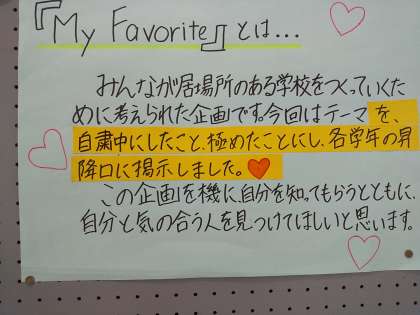 『My Favorite』とは...
みんなが居場所のある学校をつくっていくた
めに考えられた企画です。今回はテーマを、
自粛中にしたこと、極めたことにし、各学年の昇
降口に掲示しました。
この企画を機に、自分を知ってもらうとともに、
自分と気の合う人を見つけてほしいと思います。